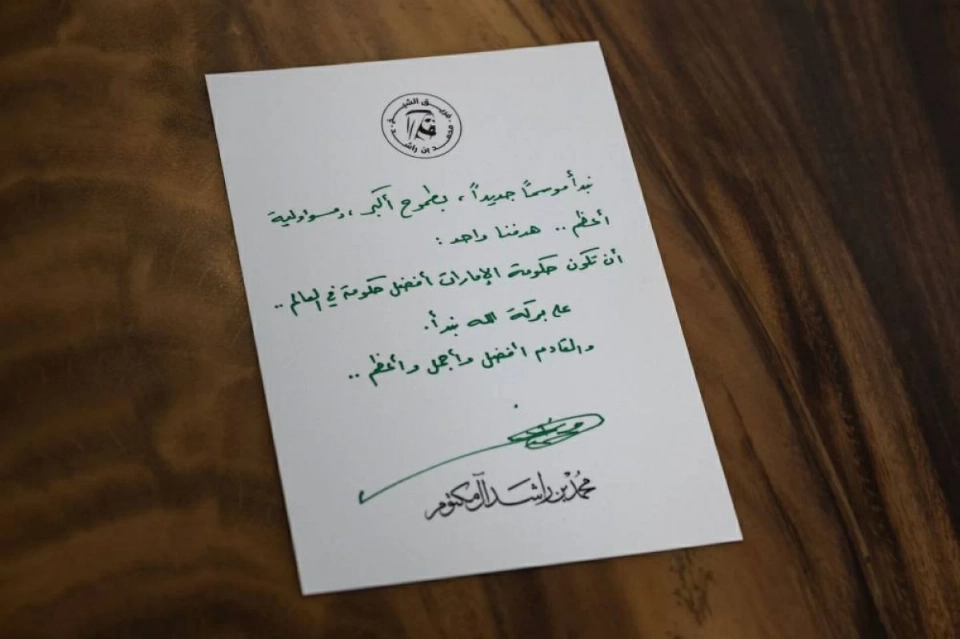 فريق الشيخ
محمد بن راشد
نبدأ موسمًا جديدًا ، بطموح أكبر ، ومسؤولية
أعظم .. هدفنا واحد :
أن تكون حكومة الإمارات أفضل حكومة في العالم ..
على بركة الله نبدأ .
والقادم أفضل وأجمل وأعظم ..
محمد بن راشد آل مكتوم